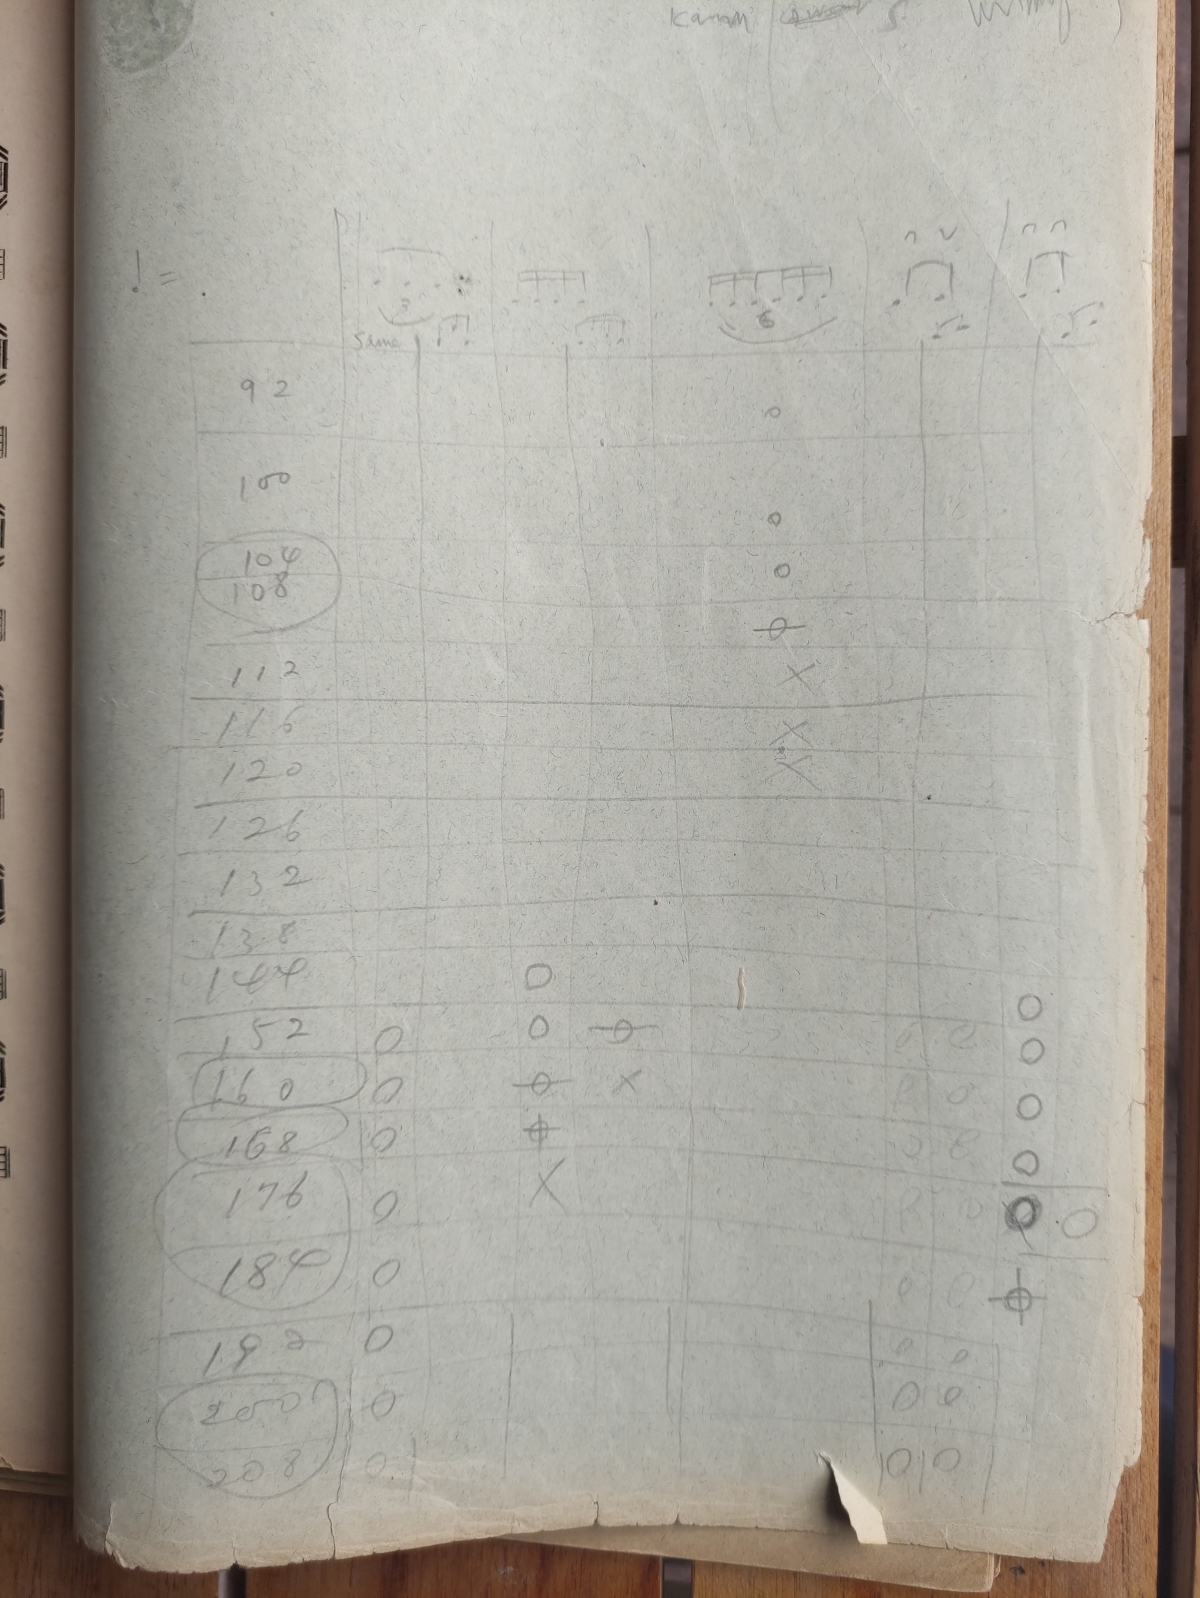 ♩ = .
3
6
same
92
100
104
108
112
116
120
126
132
138
144 O
O
152 O O O O O
O
160 O O X O O
O
168 O O O O
O
176 O X O O
O O
184 O O O
O
192 O O O
200 O O O
208 O O O